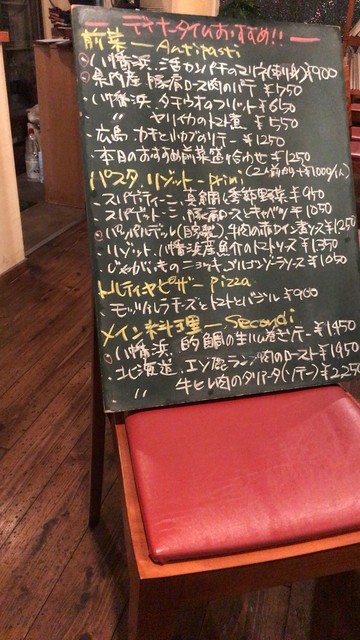 ディナータイムおすすめ!!
前菜 — Antipasti
・八幡浜.活カンパチのマリネ(刺身)¥900
・県内産 豚肩ロース肉のパテ ¥750
・八幡浜.タチウオのフリット ¥650
〃 ヤリイカのトマト煮 ¥550
・広島.カキと小カブのソテー ¥1250
・本日のおすすめ前菜盛り合わせ ¥1250
(2人前から+¥1000/1人)
パスタ.リゾット — primi
・スパゲティーニ.真鯛と季節野菜 ¥950
・スパゲットーニ.豚肩ロースとキャベツ ¥1050
・パッパルデッレ 牛肉の赤ワイン煮ソース ¥1250
・リゾット.八幡浜産魚介のトマトソース ¥1350
・じゃがいものニョッキ.ゴルゴンゾーラソース ¥1050
ピザ — pizza
・モッツァレラチーズとトマトとバジル ¥900
メイン料理 — Secondi
・八幡浜.的鯛の生ハム巻きソテー ¥1450
・北海道.エゾ鹿ランプ肉のロースト ¥1950
〃 牛ヒレ肉のタリアータ(ソテー) ¥2250